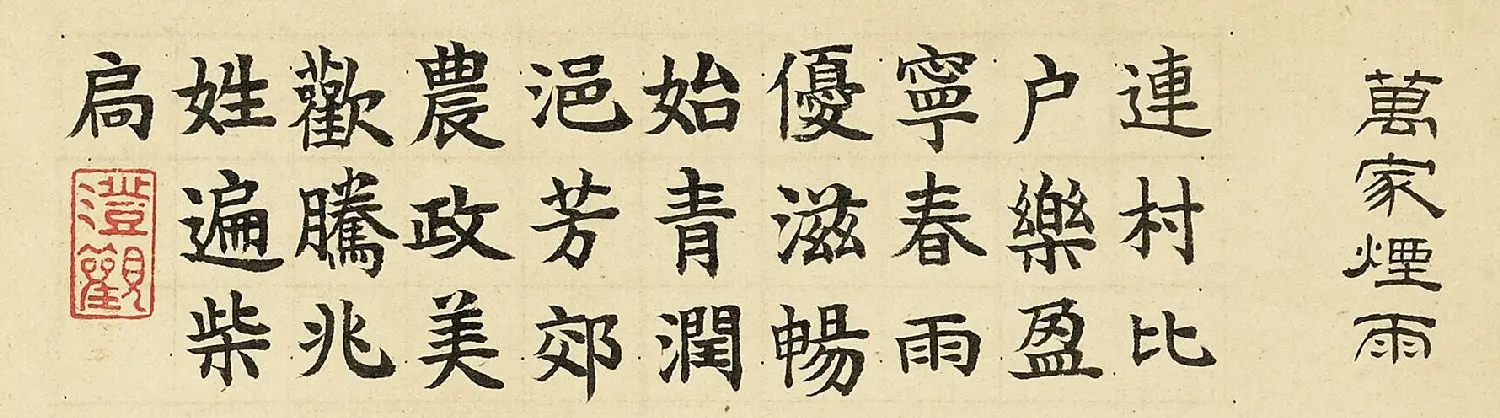 萬家煙雨
連村比
户樂盈
寧春雨
優滋暢
始青潤
浥芳郊
農政美
歡騰兆
姓遍柴
扃
澄觀